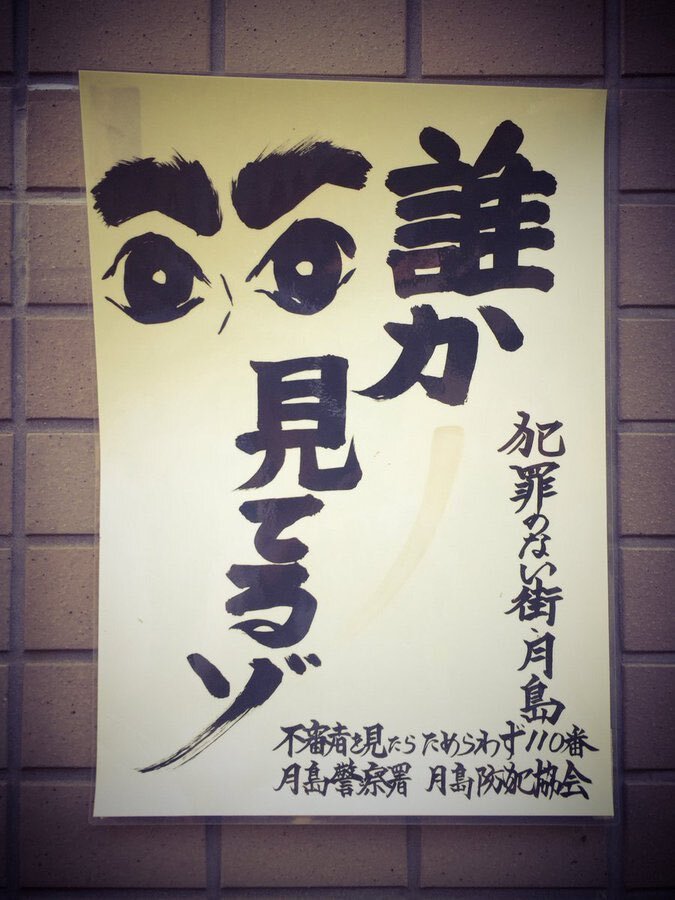 誰か
見てるゾ
犯罪のない街・月島
不審者を見たらためらわず110番
月島警察署 月島防犯協会